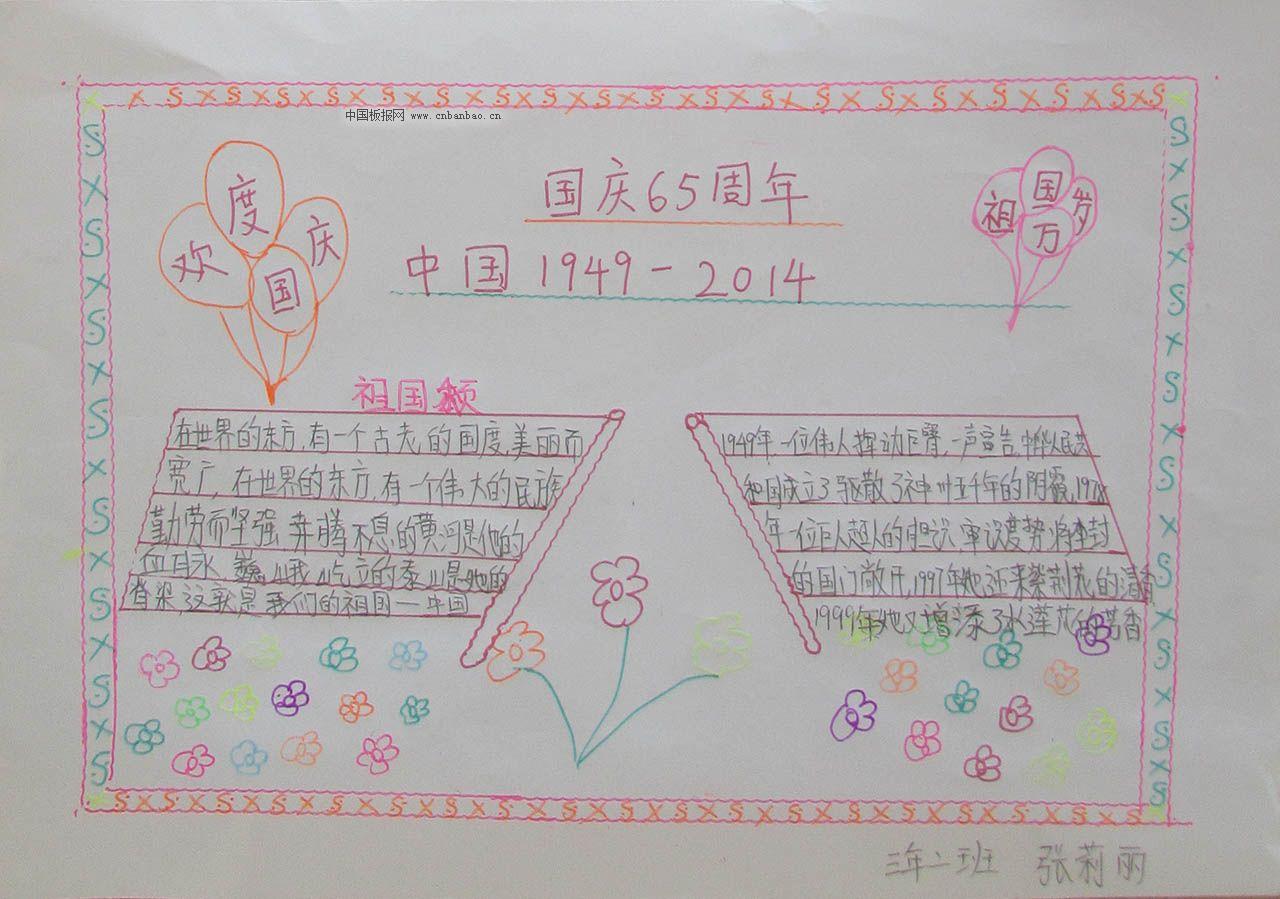 中国板报网 www.cnbanbao.cn
欢度国庆
国庆65周年
中国 1949-2014
祖国万岁
祖国颂
在世界的东方,有一个古老的国度,美丽而
宽广,在世界的东方,有一个伟大的民族
勤劳而坚强,奔腾不息的黄河是他的
血月永,巍山我山屹立的泰山是她的
脊梁,这就是我们的祖国一中国
1949年一位伟人挥动巨臂,一声宣告,中华人民共
和国成立了驱散了神州五千年的阴霾,1978
年一位巨人超人的胆识,审识度势,将封
的国门敞开,1997年她迎来紫荆花的清香
1999年她又增添了水莲花的芳香
三年二班 张莉丽